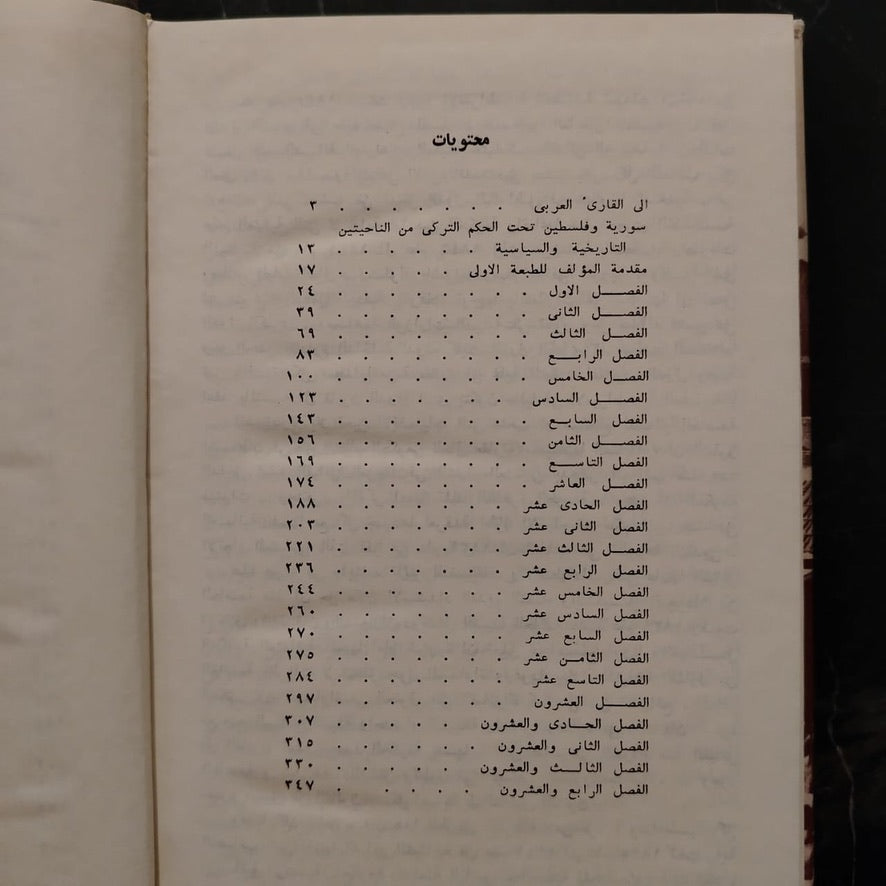 محتويات
الى القارئ العربى . . . . . . . ٣
سورية وفلسطين تحت الحكم التركى من الناحيتين
التاريخية والسياسية . . . . . . ١٣
مقدمة المؤلف للطبعة الاولى . . . . . ١٧
الفصل الاول . . . . . . . . ٢٤
الفصل الثانى . . . . . . . . ٣٩
الفصل الثالث . . . . . . . . ٦٩
الفصل الرابع . . . . . . . . ٨٣
الفصل الخامس . . . . . . . . ١٠٠
الفصل السادس . . . . . . . ١٢٣
الفصل السابع . . . . . . . . ١٤٣
الفصل الثامن . . . . . . . . ١٥٦
الفصل التاسع . . . . . . . . ١٦٩
الفصل العاشر . . . . . . . . ١٧٤
الفصل الحادى عشر . . . . . . . ١٨٨
الفصل الثانى عشر . . . . . . . ٢٠٣
الفصل الثالث عشر . . . . . . . ٢٢١
الفصل الرابع عشر . . . . . . . ٢٣٦
الفصل الخامس عشر . . . . . . . ٢٤٤
الفصل السادس عشر . . . . . . . ٢٦٠
الفصل السابع عشر . . . . . . . ٢٧٠
الفصل الثامن عشر . . . . . . . ٢٧٥
الفصل التاسع عشر . . . . . . . ٢٨٤
الفصل العشرون . . . . . . . ٢٩٧
الفصل الحادى والعشرون . . . . . ٣٠٧
الفصل الثانى والعشرون . . . . . . ٣١٥
الفصل الثالث والعشرون . . . . . ٣٣٠
الفصل الرابع والعشرون . . . . . ٣٤٧